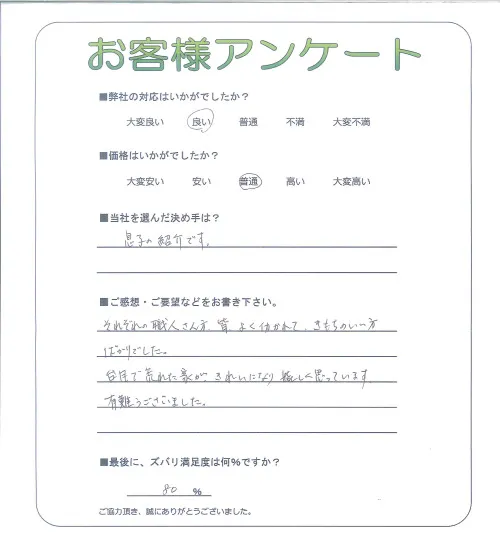 お客様アンケート
■弊社の対応はいかがでしたか？
大変良い 良い 普通 不満 大変不満
■価格はいかがでしたか？
大変安い 安い 普通 高い 大変高い
■当社を選んだ決め手は？
息子の紹介です。
■ご感想・ご要望などをお書き下さい。
それぞれの職人さん方 皆 よく仂かれて、きもちのいい方
ばかりでした。
台風で荒れた家が、きれいになり 嬉しく思っています。
有難うございました。
■最後に、ズバリ満足度は何%ですか？
80 %
ご協力頂き、誠にありがとうございました。